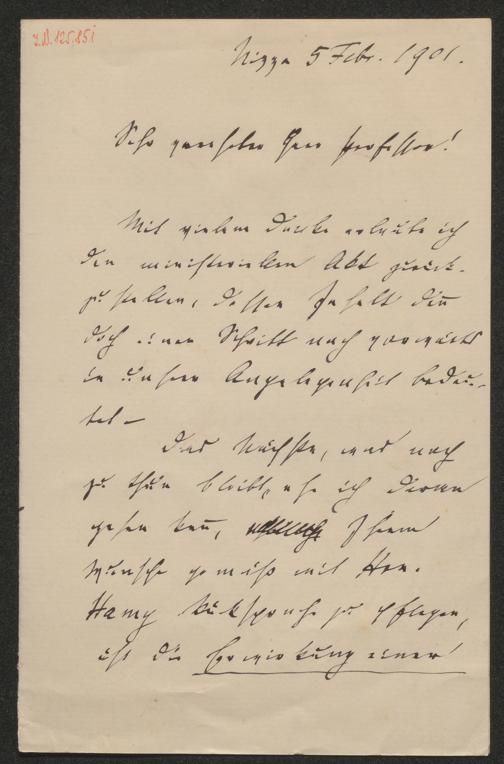 I.N. 125.851
Nizza 5 Febr. 1901.
Sehr verehrter Herr Professor!
Mit vielem Danke erlaube ich
den ministeriellen Akt zurück-
zustellen, dessen Inhalt
doch einen Schritt nach vorwärts
in unserer Angelegenheit bedeu-
tet –
Das Nächste, was noch
zu thun bleibt, ehe ich daran
gehen kann, Ihrem
Wunsche gemäß mit Hrn.
Hamy Rücksprache zu pflegen,
ist die Erwirkung einer